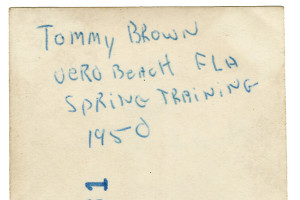 Tommy Brown
Vero Beach FLA
Spring Training
1950
1